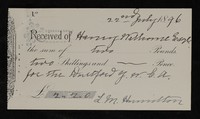 22nd July 1896
Received of Henry Wellcome Esqre
the sum of two Pounds
two Shillings and — Pence
for the
£ 2-2-0 L. M. Hamilton